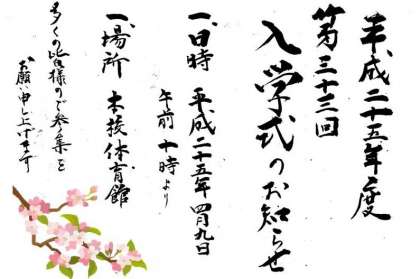 平成二十五年度
第三十三回
入学式のお知らせ
一、日時 平成二十五年 四月九日
午前 十時より
一、場所 本校体育館
多くの皆様のご参集を
お願い申し上げます